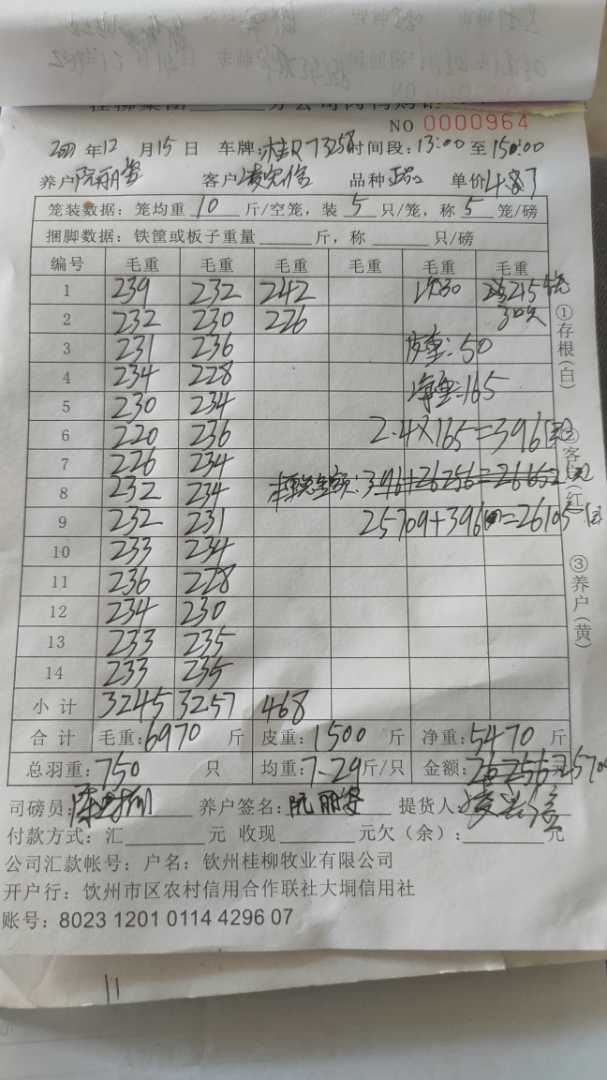 NO 0000964
年12月15日 车牌: 时间段:13:00至15:00
养户 客户 品种 单价
笼装数据:笼均重 10 斤/空笼,装 5 只/笼,称 5 笼/磅
捆脚数据:铁筐或板子重量 斤,称 只/磅
编号 毛重 毛重 毛重 毛重 毛重 毛重
1 239 232 242 215
2 232 230 226
3 231 236 皮重:50
4 234 228 净重=165
5 230 234
6 220 236 2.4×165=396
7 226 234
8 232 234 396+26256=26652
9 232 231 25709+396=26105
10 233 234
11 236 228
12 234 230
13 233 235
14 233 235
小计 3245 3257 468
合计 毛重:6970 斤 皮重:1500 斤 净重:5470 斤
总羽重:750 只 均重:7.29斤/只 金额:26256
司磅员: 养户签名:阮丽 提货人:
付款方式:汇 元 收现 元欠(余): 元
公司汇款帐号:户名:钦州桂柳牧业有限公司
开户行:钦州市区农村信用合作联社大垌信用社
账号:8023 1201 0114 4296 07
①存根(白)
②客 (红)
③养户(黄)